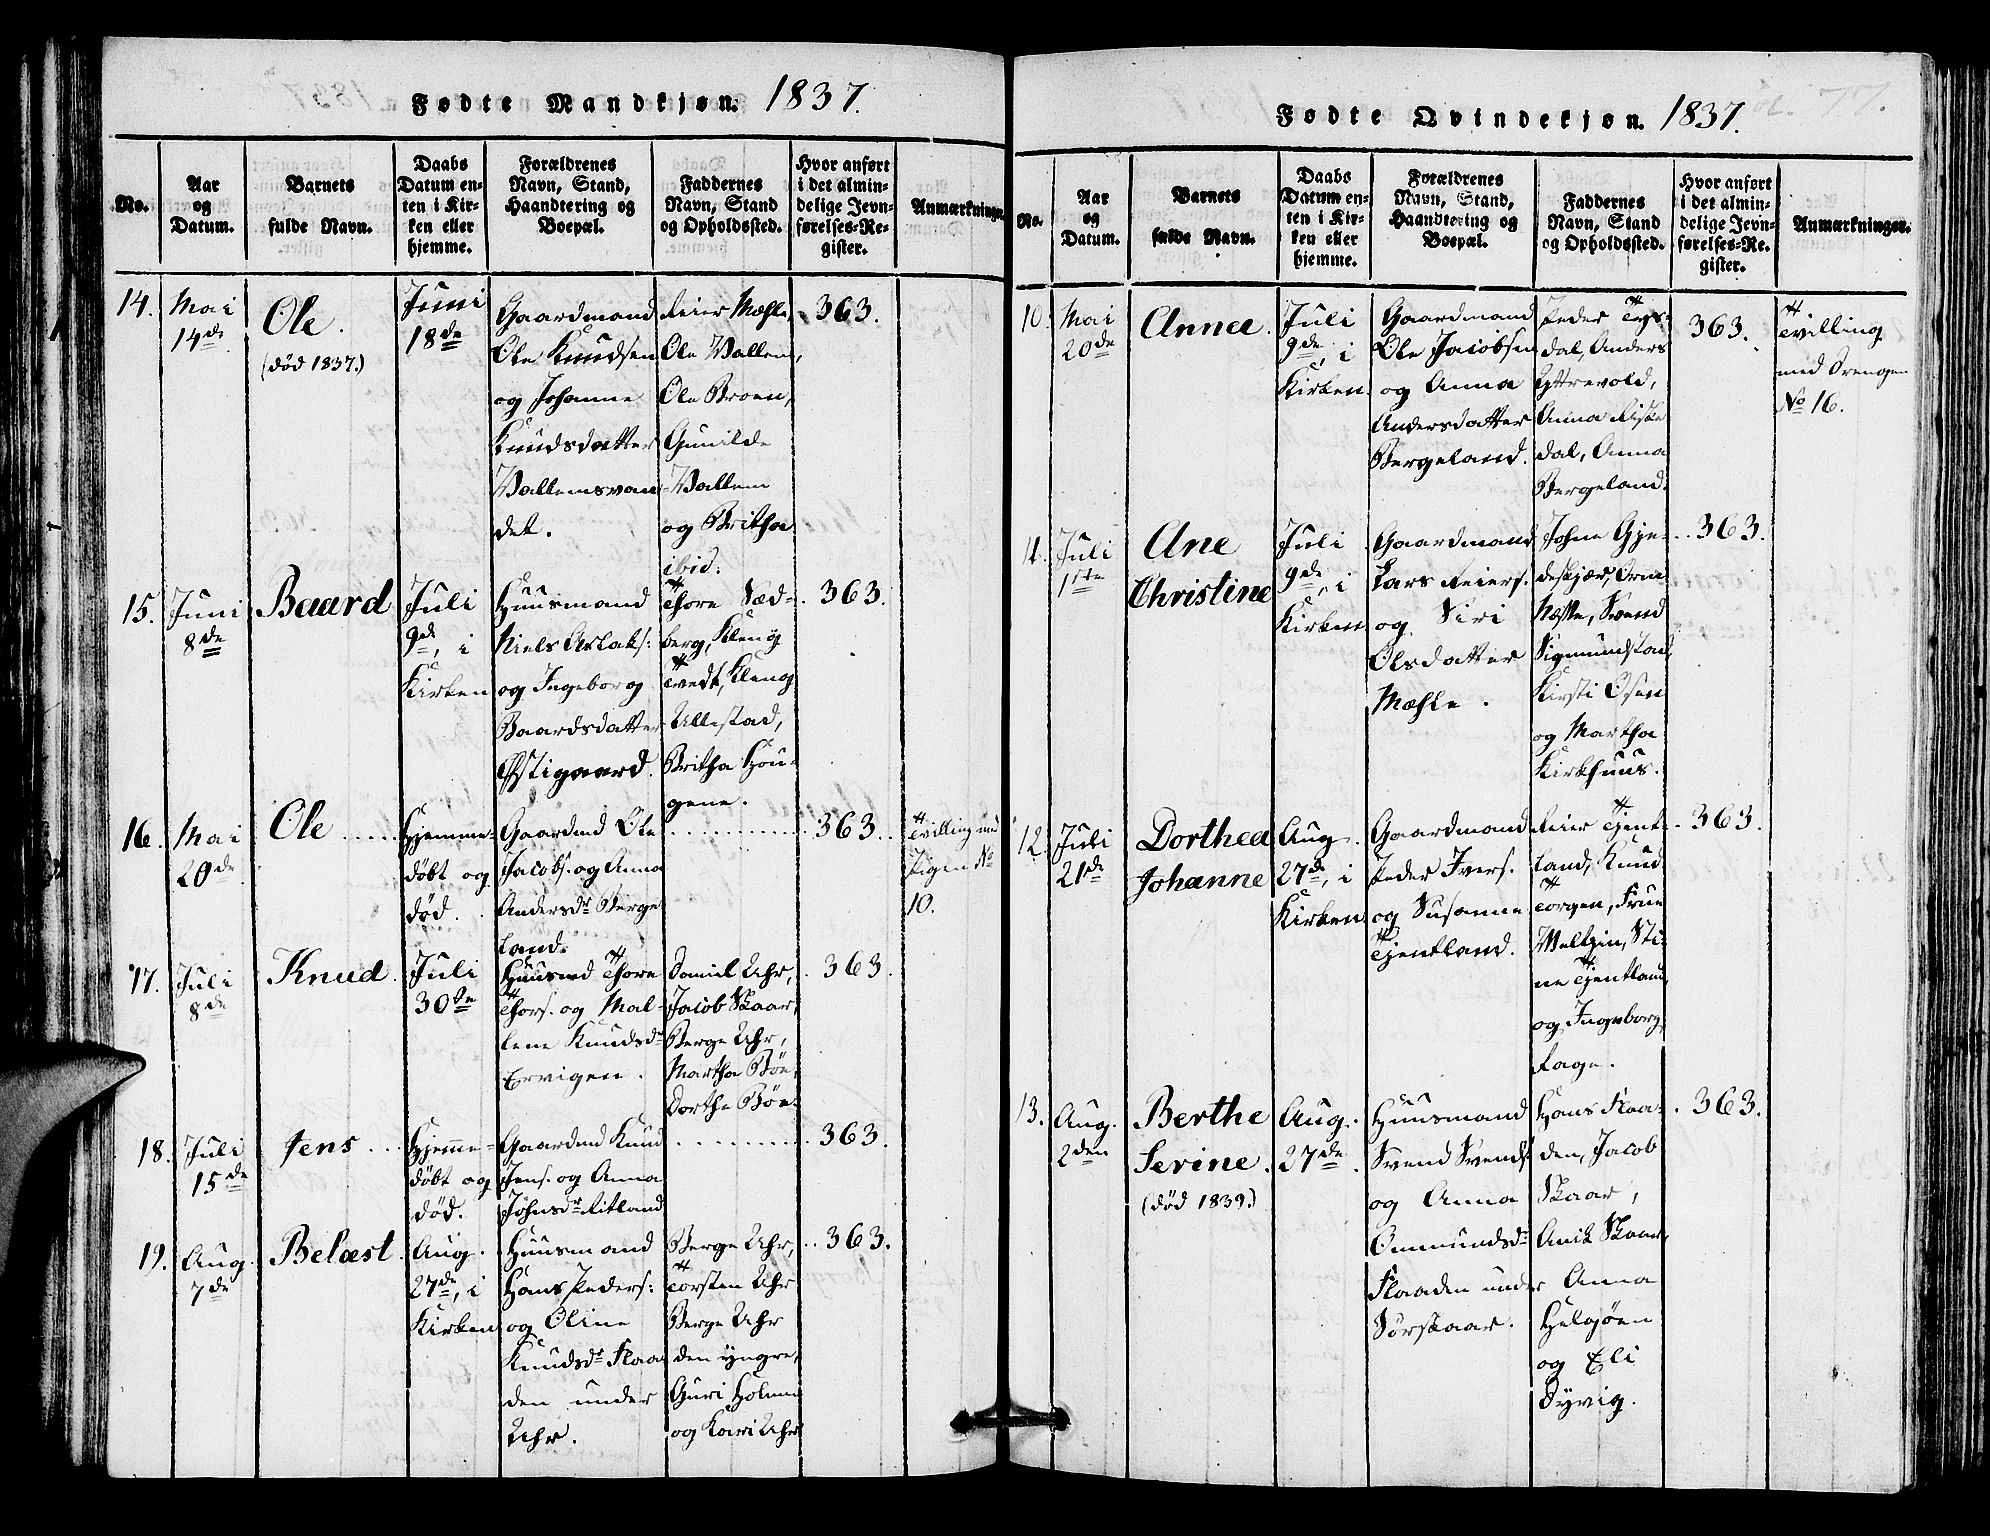 Fødte Mandkjøn. 1837.
No.
Aar
og
Datum.
Barnets
fulde Navn.
Daabs
Datum en-
ten i Kir-
ken eller
hjemme.
Forældrenes
Navn, Stand,
Haandtering og
Boepæl.
Faddernes
Navn, Stand
og Opholdssted.
Hvor anført
i det almin-
delige Jevn-
førelses-Re-
gister.
Anmærkninge
14.
Mai
14de
Ole.
(død 1837.)
Juni
18de
Gaardmand
Ole Knudsen
og Johanne
Knudsdatter
Wallemsvan
det.
Reier Mæhle,
Ole Wallem,
Ole Broen,
Gunilde
Wallem
og Britha
ibid.
363.
15.
Juni
8de
Baard
Juli
9de, i
Kirken
Huusmand
Niels Aslaks:
og Ingeborg
Baardsdatter
Østigaard.
Thore Sæd-
berg, Kleng
Tvedt, Kleng
Ullestad,
Britha Hou-
gene.
363.
16.
Mai
20de
Ole
Hjemme-
døbt og
død.
Gaardmd Ole
Jacobs. og Anna
Andersdr Berge
land.
363.
Tvilling med
Pigen No
10.
17.
Juli
8de
Knud.
Juli
30te
Huusmd Thore
Thors. og Mal-
lene Knudsdr
Ervigen.
Daniel Uhr,
Jacob Skaar,
Berge Uhr,
Martha Böe,
Dorthe Böe.
363.
18.
Juli
15de
Jens
Hjemme-
døbt og
død.
Gaardmd Knud
Jens. og Anna
Johnsdr Ritland
363.
19.
Aug.
7de
Belæst.
Aug.
27de, i
Kirken
Huusmand
Hans Peders:
og Oline
Knudsdr Flaa
den under
Uhr.
Berge Uhr,
Torsten Uhr
Berge Uhr
den yngre,
Guri Holmen
og Kari Uhr
363.
Fødte Qvindekjøn. 1837.
77.
No.
Aar
og
Datum.
Barnets
fulde Navn.
Daabs
Datum en-
ten i Kir-
ken eller
hjemme.
Forældrenes
Navn, Stand,
Haandtering og
Boepæl.
Faddernes
Navn, Stand
og Opholdssted.
Hvor anført
i det almin-
delige Jevn-
førelses-Re-
gister.
Anmærkninger.
10.
Mai
20de
Anna.
Juli
9de, i
Kirken.
Gaardmand
Ole Jacobsen
og Anna
Andersdatter
Bergeland.
Peder Tys-
dal, Anders
Yttrevold,
Anna Riske
dal, Anna
Bergeland.
363.
Tvilling
med Drengen
No 16.
Juli
1ste
Ane
Christine
Juli
9de, i
Kirken
Gaardmand
Lars Reiers.
og Siri
Olsdatter
Mæhle.
Johne Gje-
deskjær, Orm
Næsse, Svend
Sigmundstad,
Kirsti Osen
og Martha
Kirkhuus.
363.
12.
Juli
21de
Dorthea
Johanne
Aug.
27de, i
Kirken
Gaardmand
Peder Ivers.
og Susanne
Tjentland.
Reier Tjent-
land, Knud
Torgen, Frue
Weltzin, Sti-
ne Tjentland,
og Ingeborg
Fage.
363.
13.
Aug.
2den
Berthe
Serine.
(død 1839.)
Aug.
27de
Huusmand
Svend Svends.
og Anna
Ommundsdr
Flaaden under
Sørskaar.
Hans Flaa-
den, Jacob
Skaar,
Anik Skaar,
Anna
Helgøen
og Eli
Dyvig.
363.